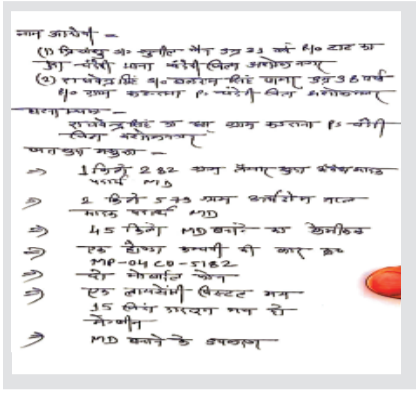 नाम आरोपी -
(1) प्रियांशु s/o सुनील जैन उम्र 21 वर्ष R/o टाट का
कुआ चंदेरी थाना चंदेरी जिला अशोकनगर
(2) राघवेन्द्र सिंह s/o बलराम सिंह यादव उम्र 38 वर्ष
R/o ग्राम Ps चंदेरी जिला अशोकनगर
घटना स्थल -
राघवेन्द्र सिंह का ग्राम Ps चंदेरी
जिला अशोकनगर
जप्त शुदा मशरूका -
⇒ 1 किलो 282 ग्राम तैयार शुदा
पदार्थ MD
⇒ 2 किलो 573 ग्राम
मादक पदार्थ MD
⇒ 45 किलो MD बनाने का केमीकल
⇒ एक होण्डा कम्पनी की कार क्र०
MP-04 CD-5182
⇒ दो मोबाईल फोन
⇒ एक लायसेंसी पिस्टल मय
15 जिंदा मय दो
मैग्जीन
⇒ MD बनाने के उपकरण